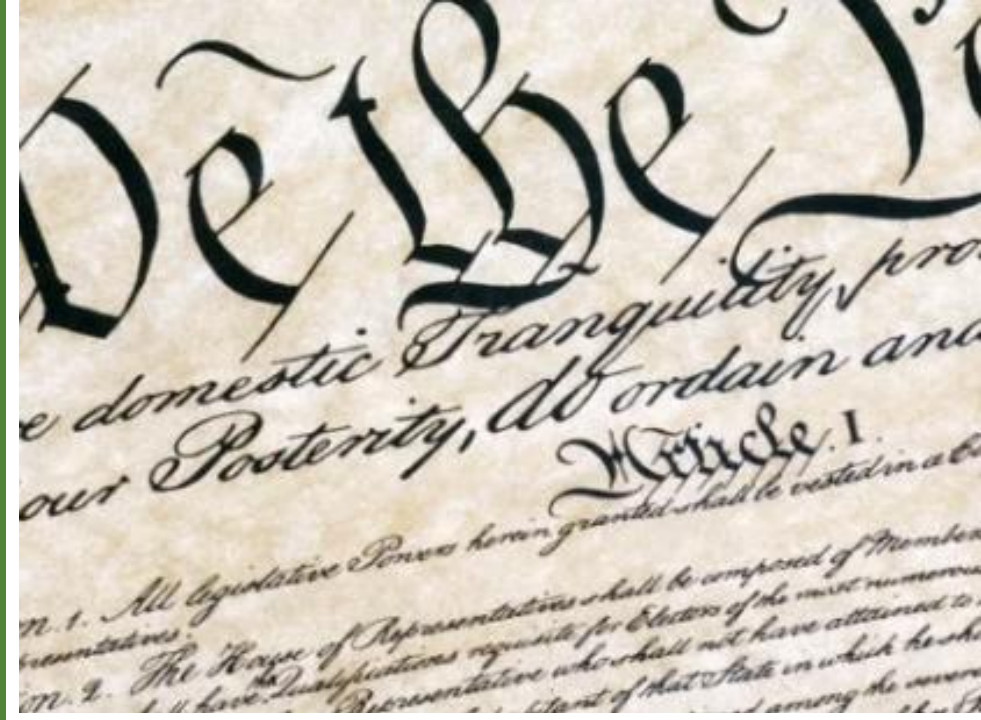 We the Pe
e domestic Tranquility, pro
our Posterity, do ordain and
Article. I.
n. 1. All legislative Powers herein granted shall be vested in a Co
resentatives.
n. 2. The House of Representatives shall be composed of Member
ll have the Qualifications requisite for Electors of the most numerous
Representative who shall not have attained to
bitant of that State in which he sha
among the severa